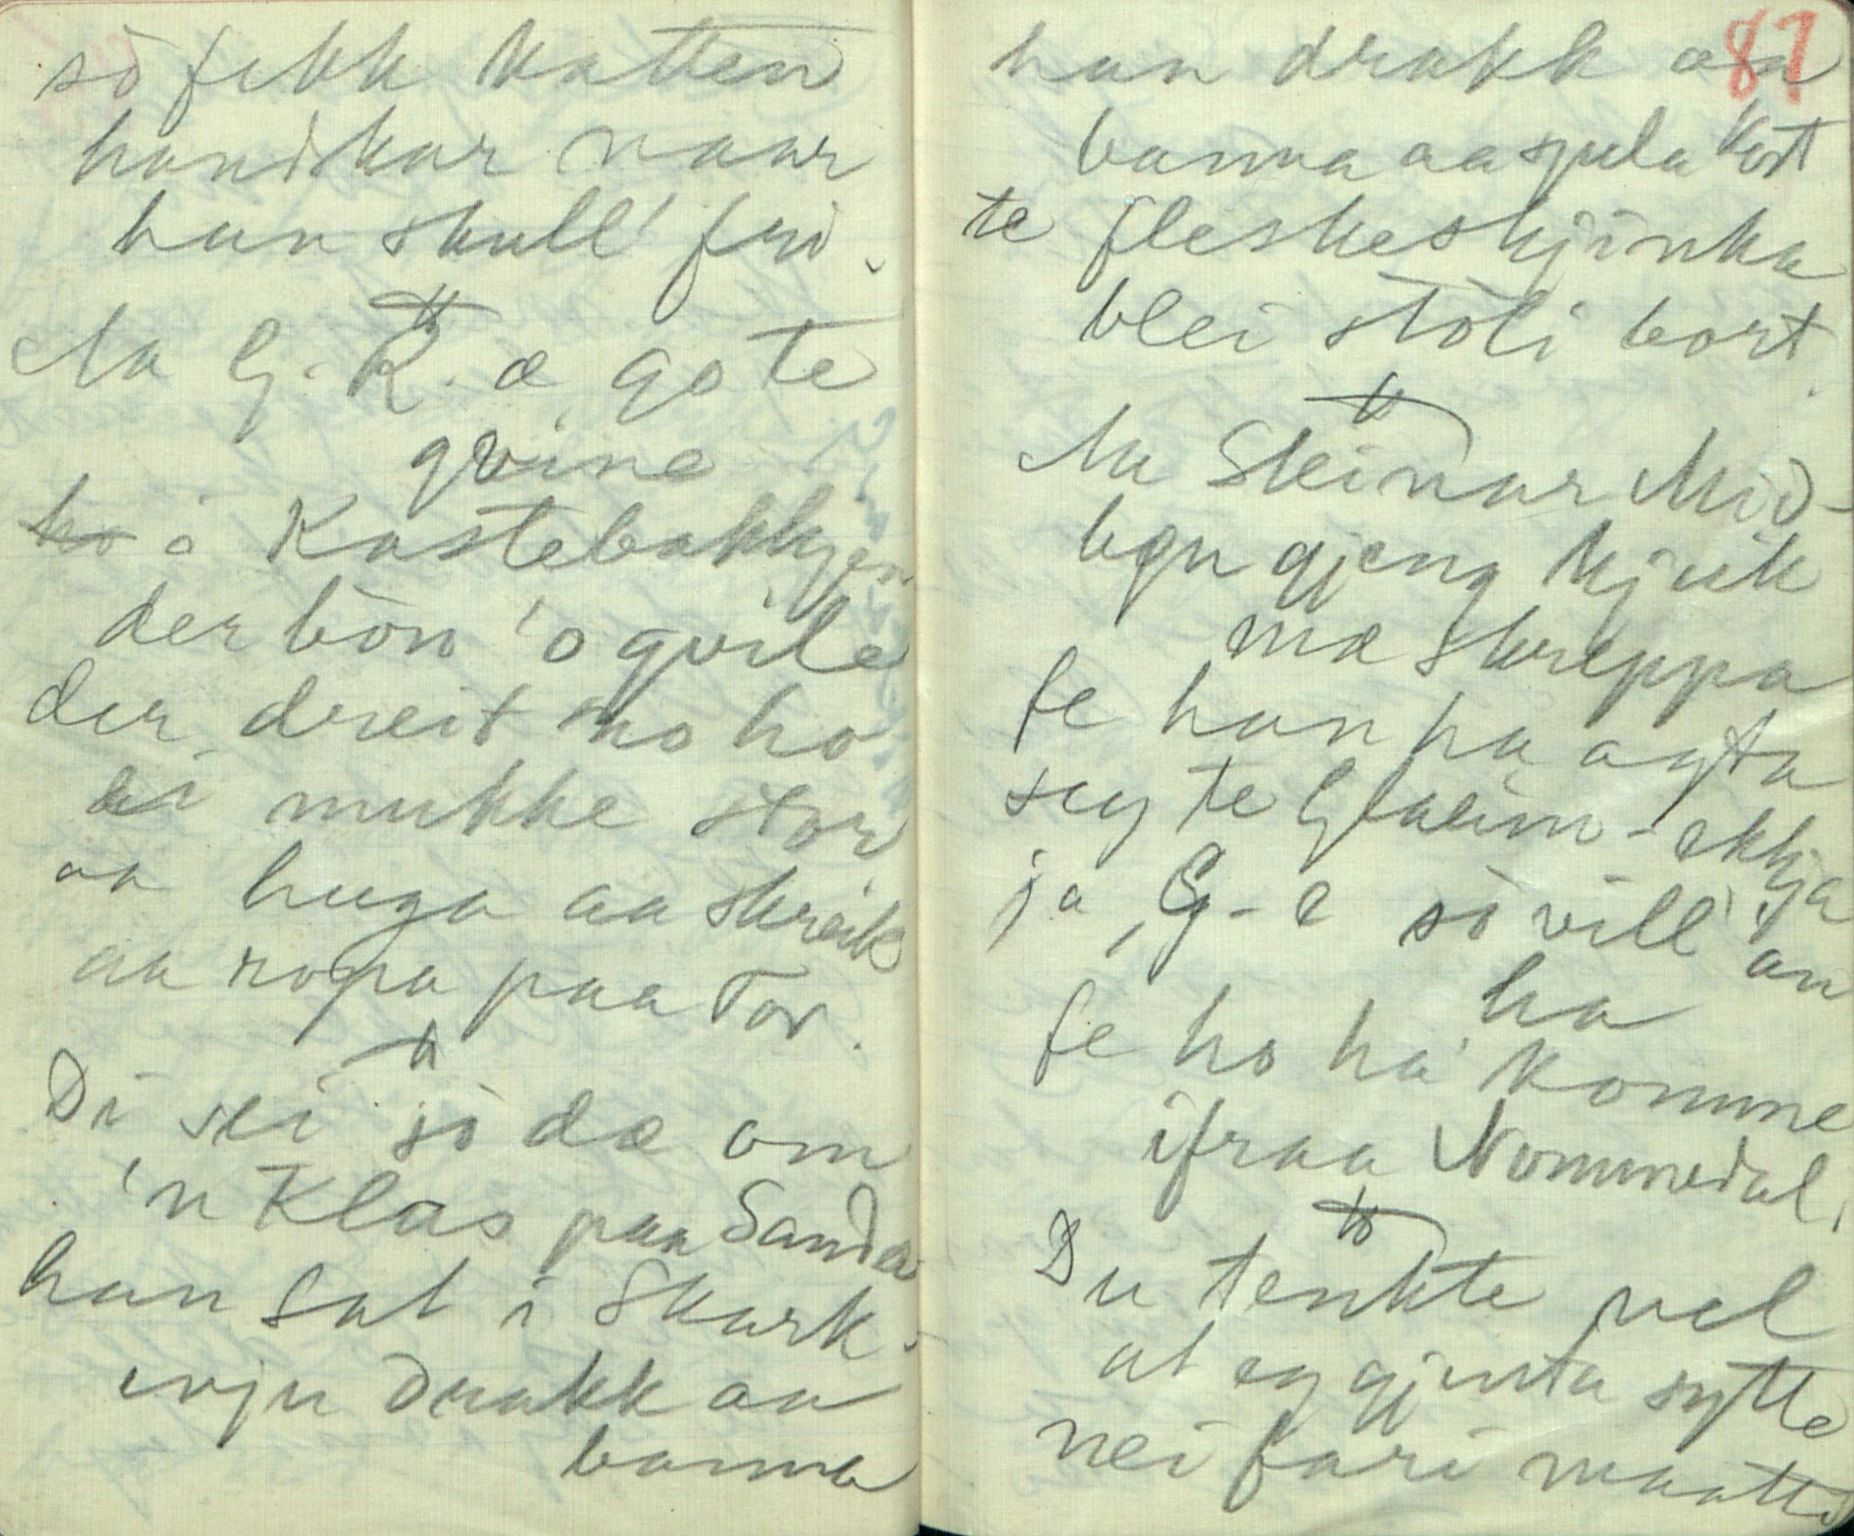 sò fekk katten
handskar naar
han skull' fri.
Aa G. R. æ go te
gvine
ho i Kastebakkjen
der bòn 'o gvile
der dreit ho ho
ei mukke stor
aa huga aa skreik
aa ropa paa Tor.
Di sei sò dæ om
'n Klas paa Sanda
han sat i Skork-
evju drakk aa
banna
87
han drakk aa
banna aa spela kort
te fleskeskjinka
blei stòli bort.
Aa Steinar Mid-
bøn gjeng kjvik
mæ skreppa
fe han ha agta
seg te Glaeim-ekkja
ja, G-e sò vill' an
ha
fe ho ha' komme
ifraa Nommedal.
Du tenkte vel
at eg gjenta sytte
nei fari maatte